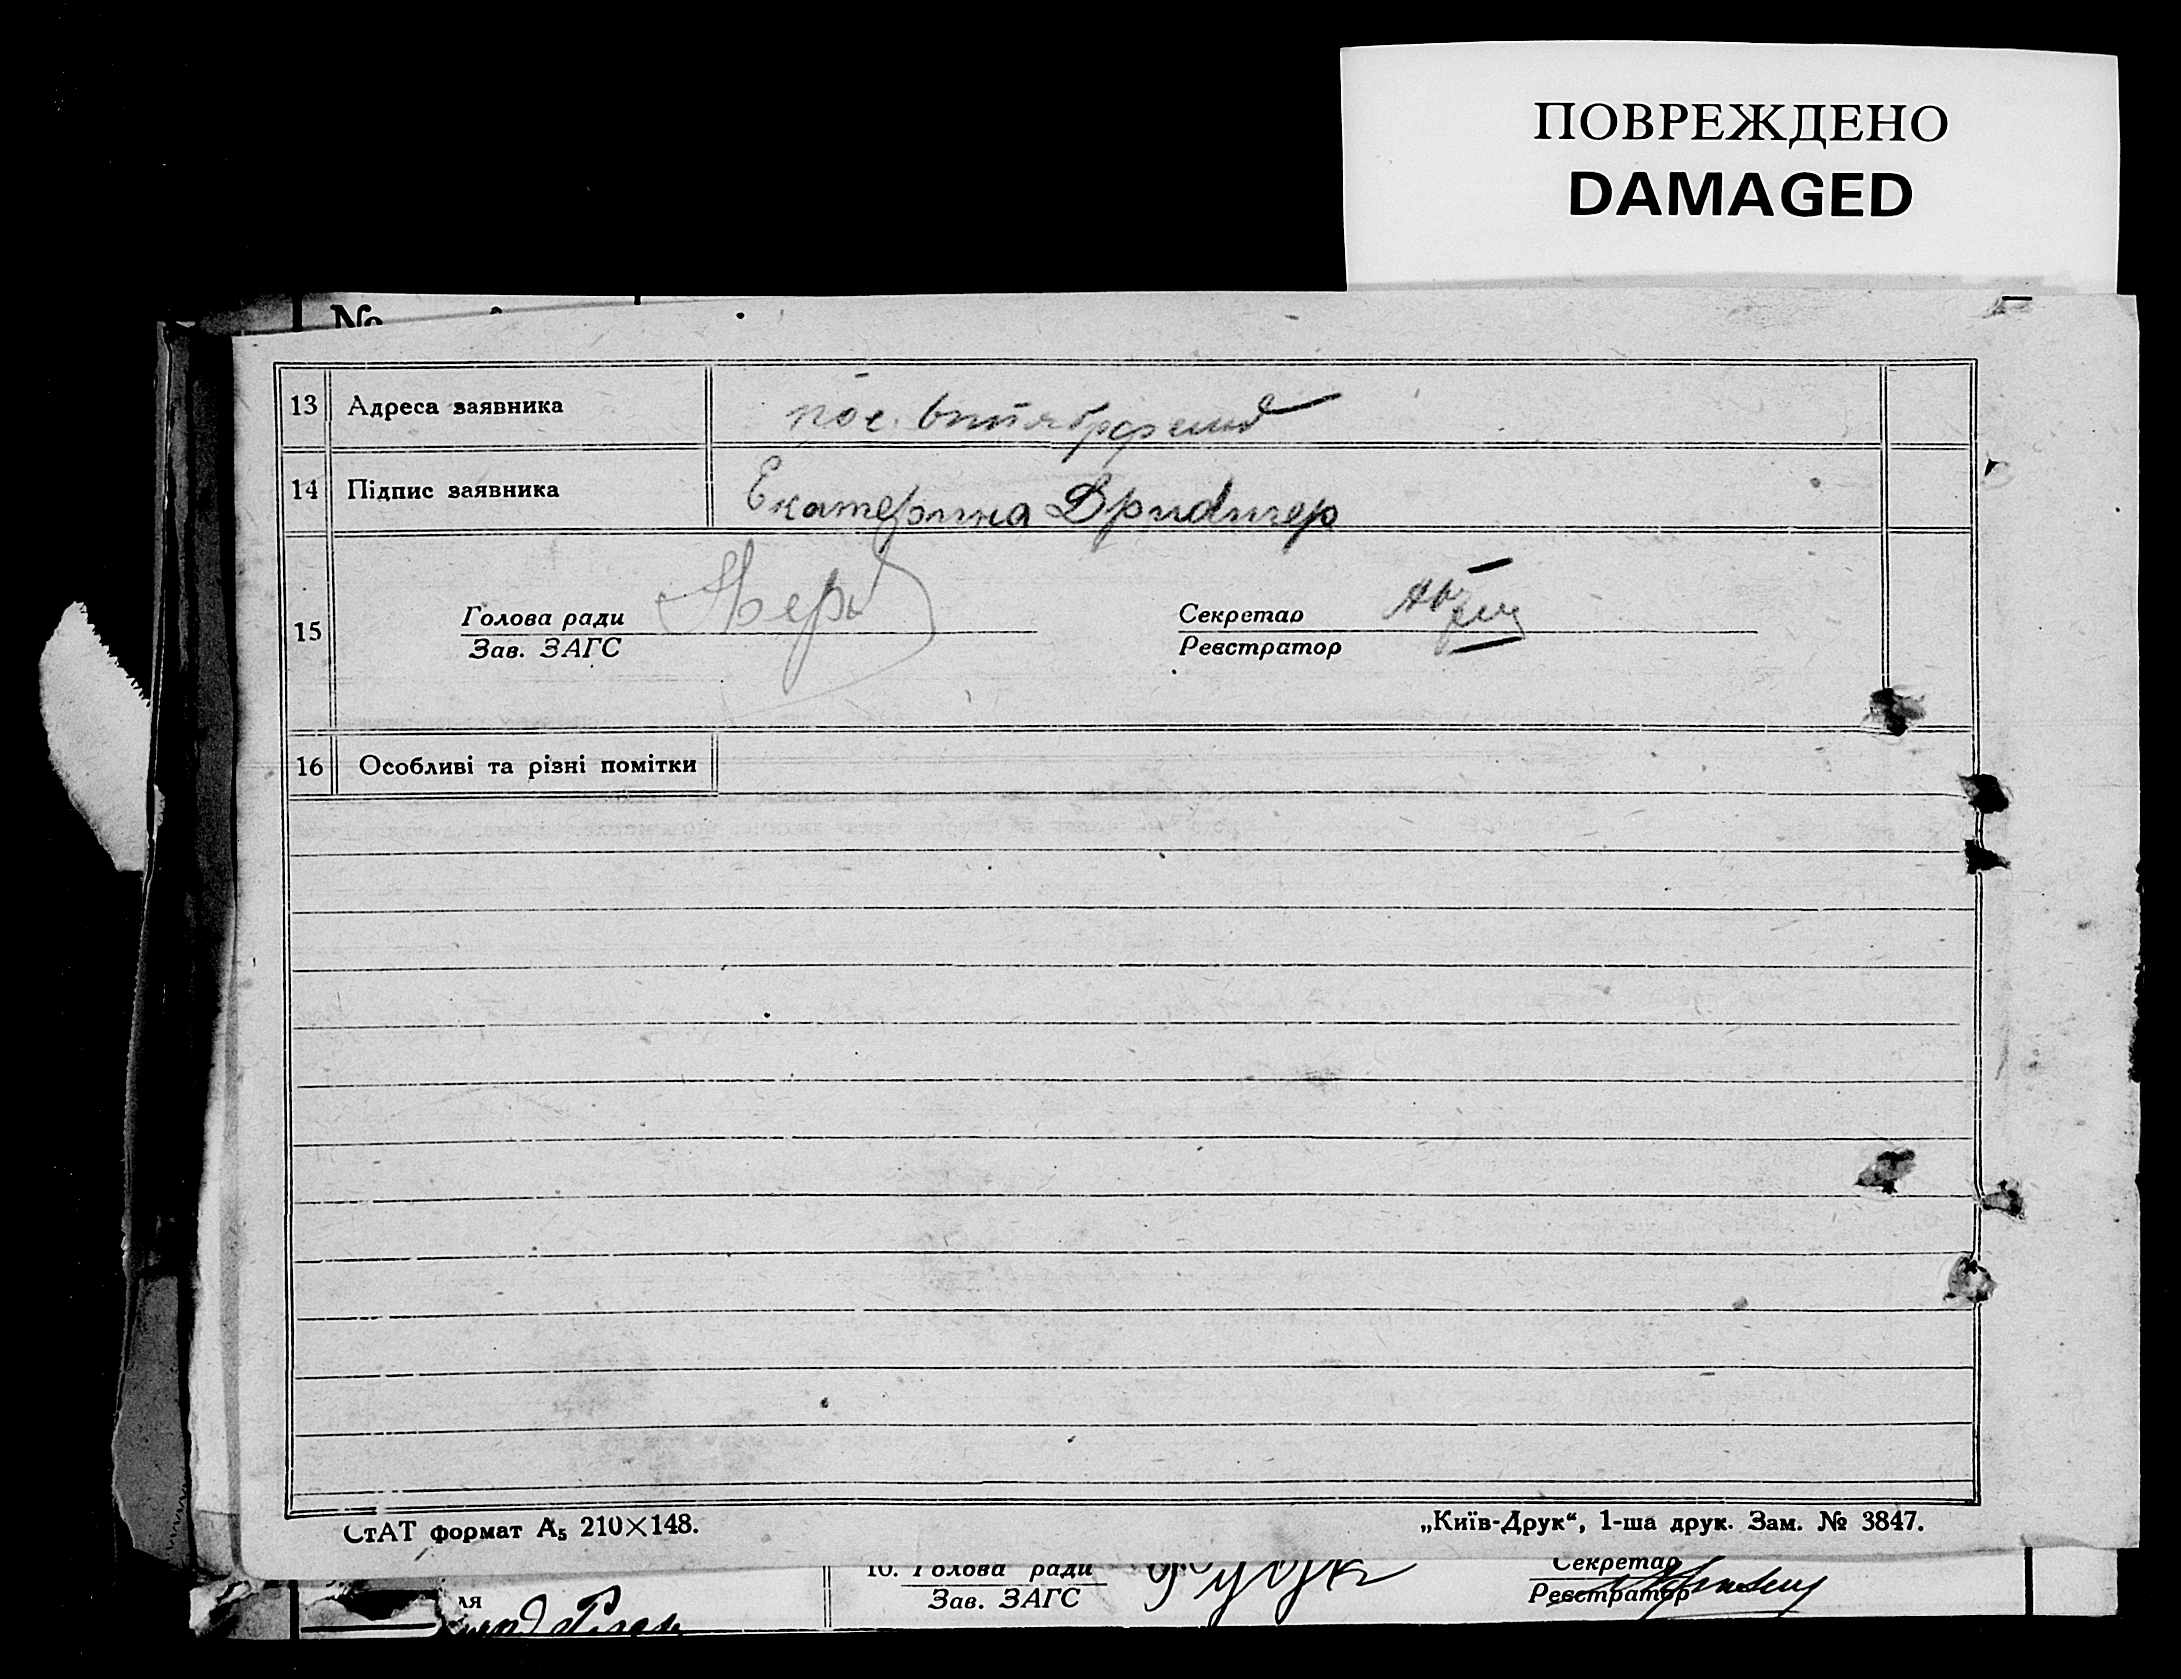 ПОВРЕЖДЕНО
DAMAGED
№
13 Адреса заявника пос.
14 Підпис заявника Екатерина
15 Голова ради Секретар
Зав. ЗАГС Реєстратор
16 Особливі та різні помітки
СтАТ формат А₅ 210×148. „Київ-Друк“, 1-ша друк. Зам. № 3847.
10. Голова ради Секретар
ля Зав. ЗАГС Реєстратор